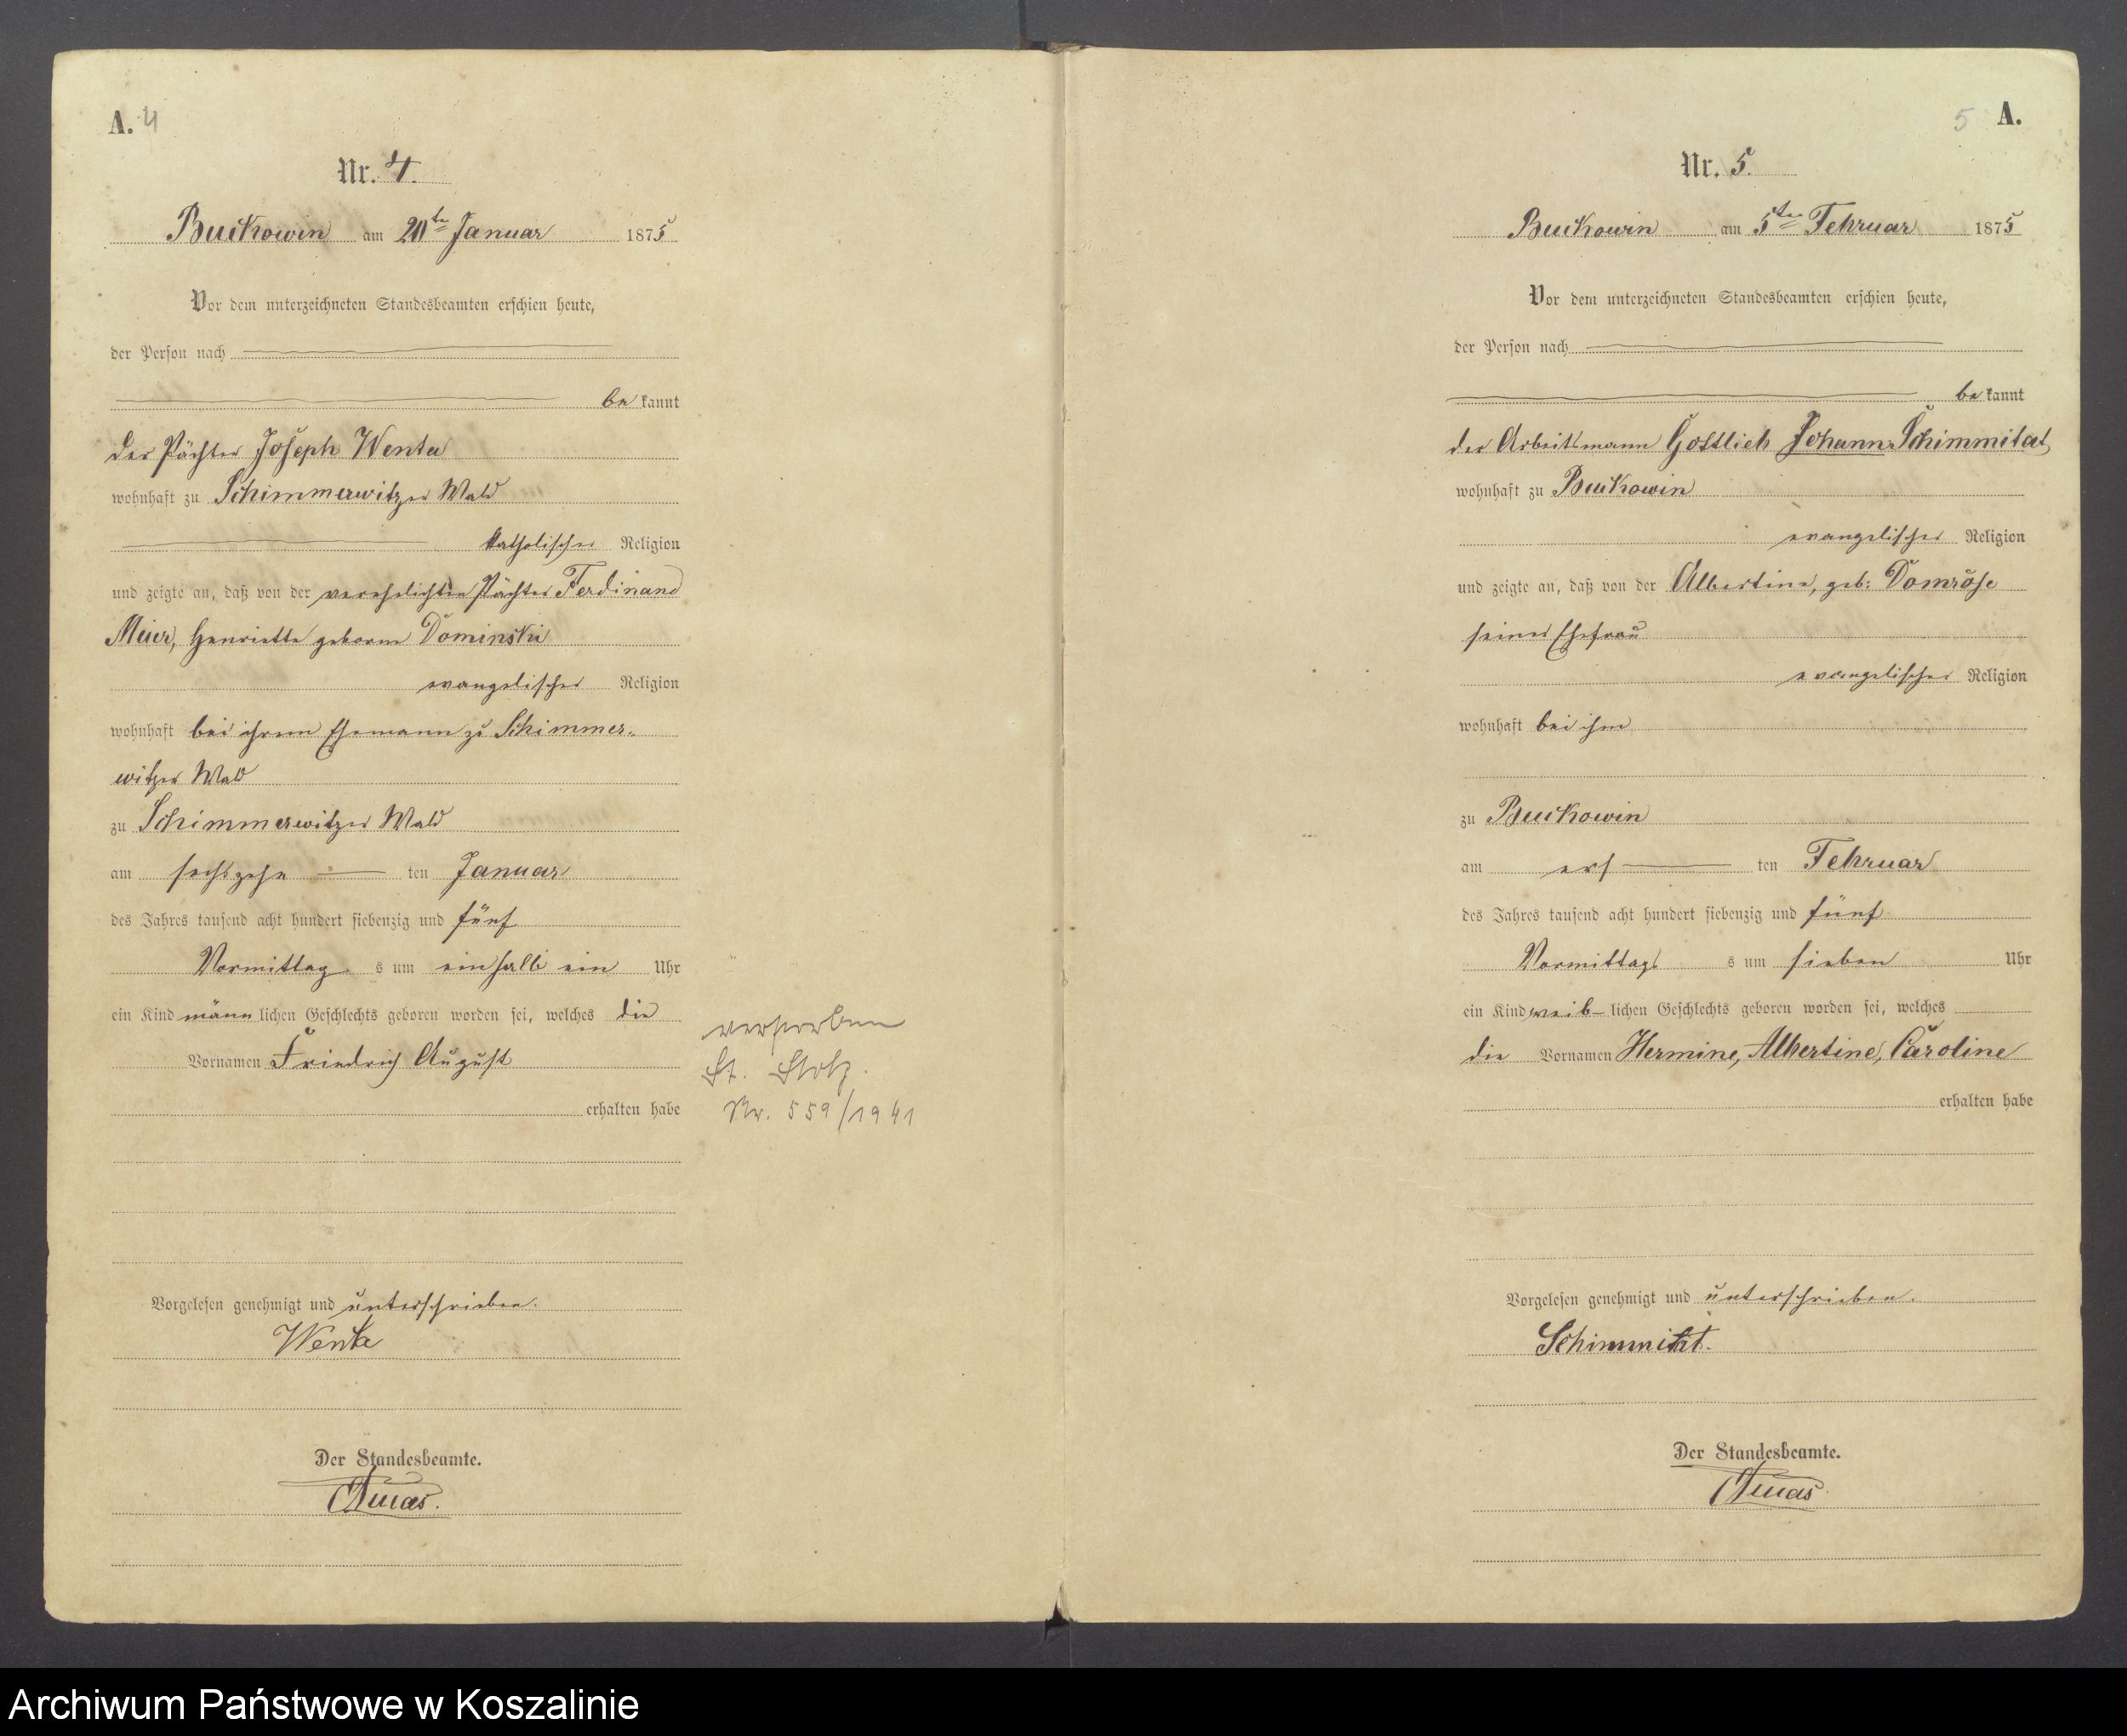 A. 4
Nr. 4.
Buckowin am 20te Januar 1875
Vor dem unterzeichneten Standesbeamten erschien heute,
der Person nach
be kannt
der Pächter Joseph Wenta
wohnhaft zu Schimmerwitzer Wald
katholischer Religion
und zeigte an, daß von der verehelichten Pächter Ferdinand
Meier, Henriette geborne Dominski
evangelischer Religion
wohnhaft bei ihrem Ehemann zu Schimmer-
witzer Wald
zu Schimmerwitzer Wald
am sechszehn ten Januar
des Jahres tausend acht hundert siebenzig und fünf
Vormittag s um ein halb ein Uhr
ein Kind männ lichen Geschlechts geboren worden sei, welches die
Vornamen Friedrich August
erhalten habe
verstorben
St. Stolp.
Nr. 559/1941
Vorgelesen genehmigt und unterschrieben.
Wenta
Der Standesbeamte.
5 A.
Nr. 5.
Buckowin am 5ten Februar 1875
Vor dem unterzeichneten Standesbeamten erschien heute,
der Person nach
be kannt
der Arbeitsmann Gottlieb Johann Schimmitat
wohnhaft zu Buckowin
evangelischer Religion
und zeigte an, daß von der Albertine, geb: Domröse
seiner Ehefrau
evangelischer Religion
wohnhaft bei ihm
zu Buckowin
am ers ten Februar
des Jahres tausend acht hundert siebenzig und fünf
Vormittags s um sieben Uhr
ein Kind weib- lichen Geschlechts geboren worden sei, welches
die Vornamen Hermine, Albertine, Caroline
erhalten habe
Vorgelesen genehmigt und unterschrieben.
Schimmitat.
Der Standesbeamte.
Archiwum Państwowe w Koszalinie